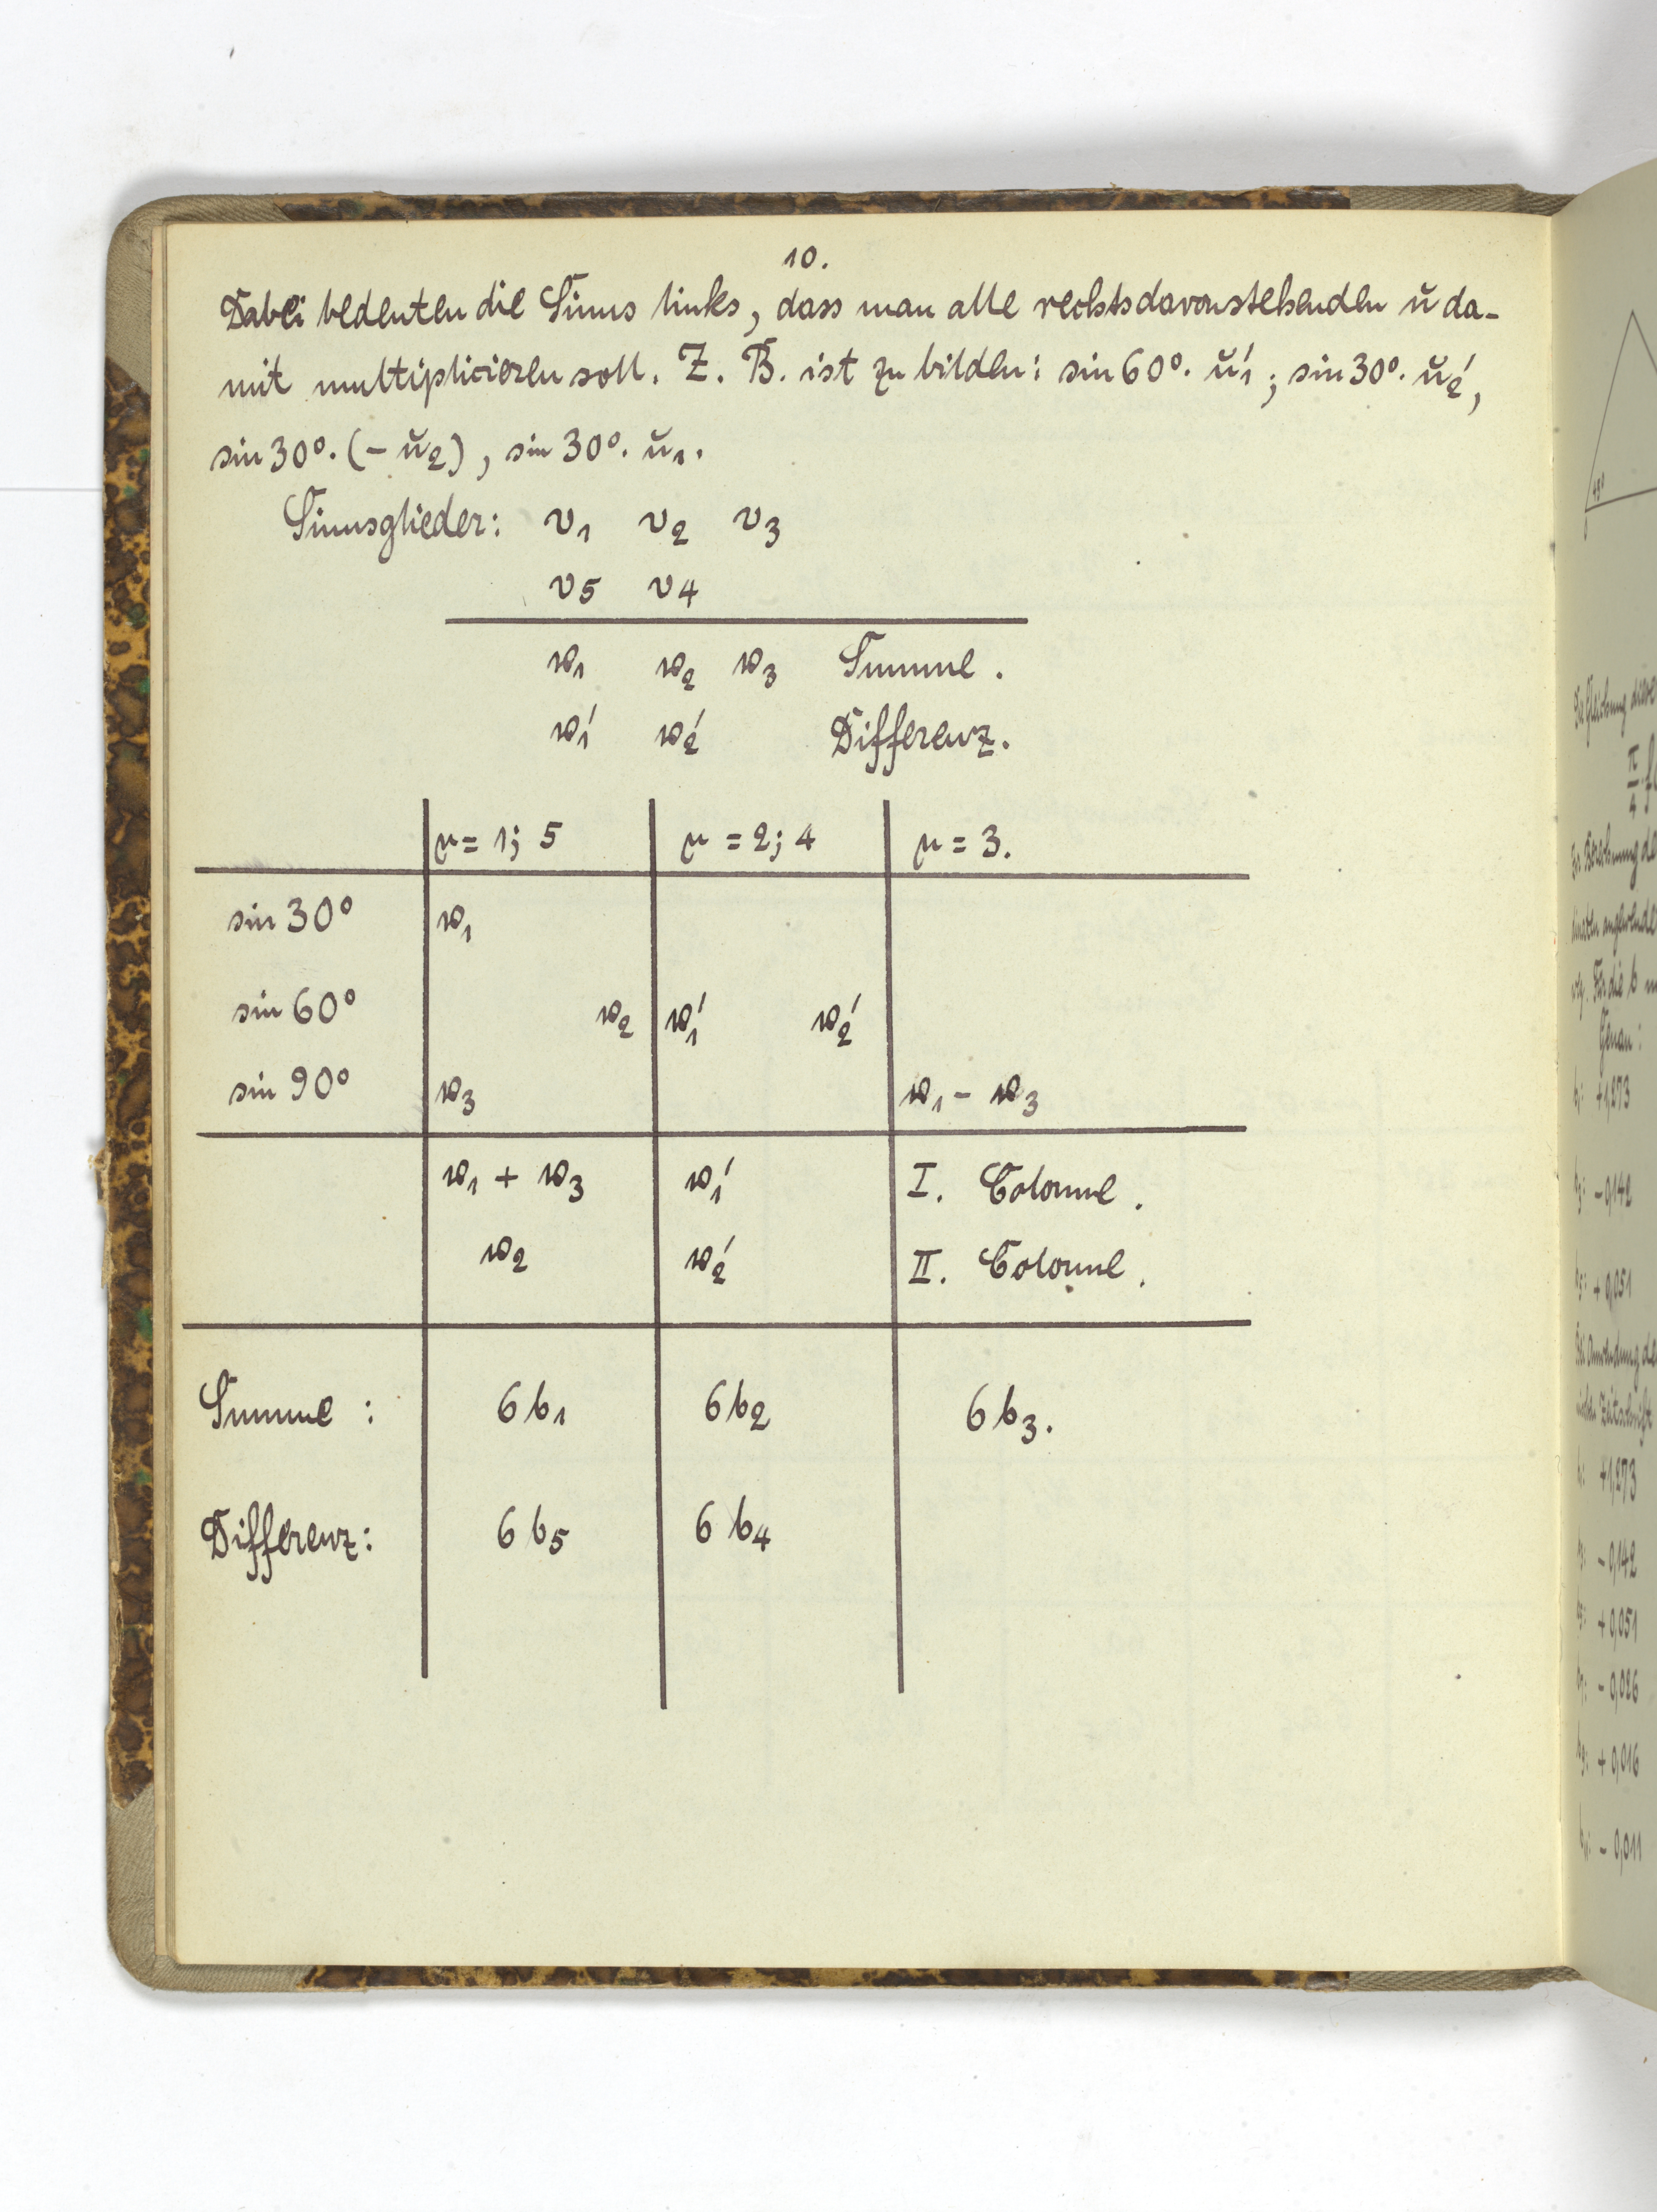 10.
Dabei bedeuten die Sinus links, dass man alle rechtsdavonstehenden ŭ da-
mit multiplicieren soll. Z. B. ist zu bilden: sin 60°. ŭ₁′ ; sin 30°. ŭ₂′,
sin 30°. (− ŭ₂), sin 30°. ŭ₁.
Sinusglieder: v₁ v₂ v₃
v₅ v₄
w₁ w₂ w₃ Summe.
w₁′ w₂′ Differenz.
μ = 1; 5 μ = 2; 4 μ = 3.
sin 30° w₁
sin 60° w₂ w₁′ w₂′
sin 90° w₃ w₁ − w₃
w₁ + w₃ w₁′ I. Colonne.
w₂ w₂′ II. Colonne.
Summe : 6 b₁ 6 b₂ 6 b₃.
Differenz: 6 b₅ 6 b₄
45°
Die Gleichung dieser
π
4
Genau:
+1,273
− 0,142
+ 0,051
+1,273
− 0,142
+ 0,051
− 0,026
+ 0,016
− 0,011